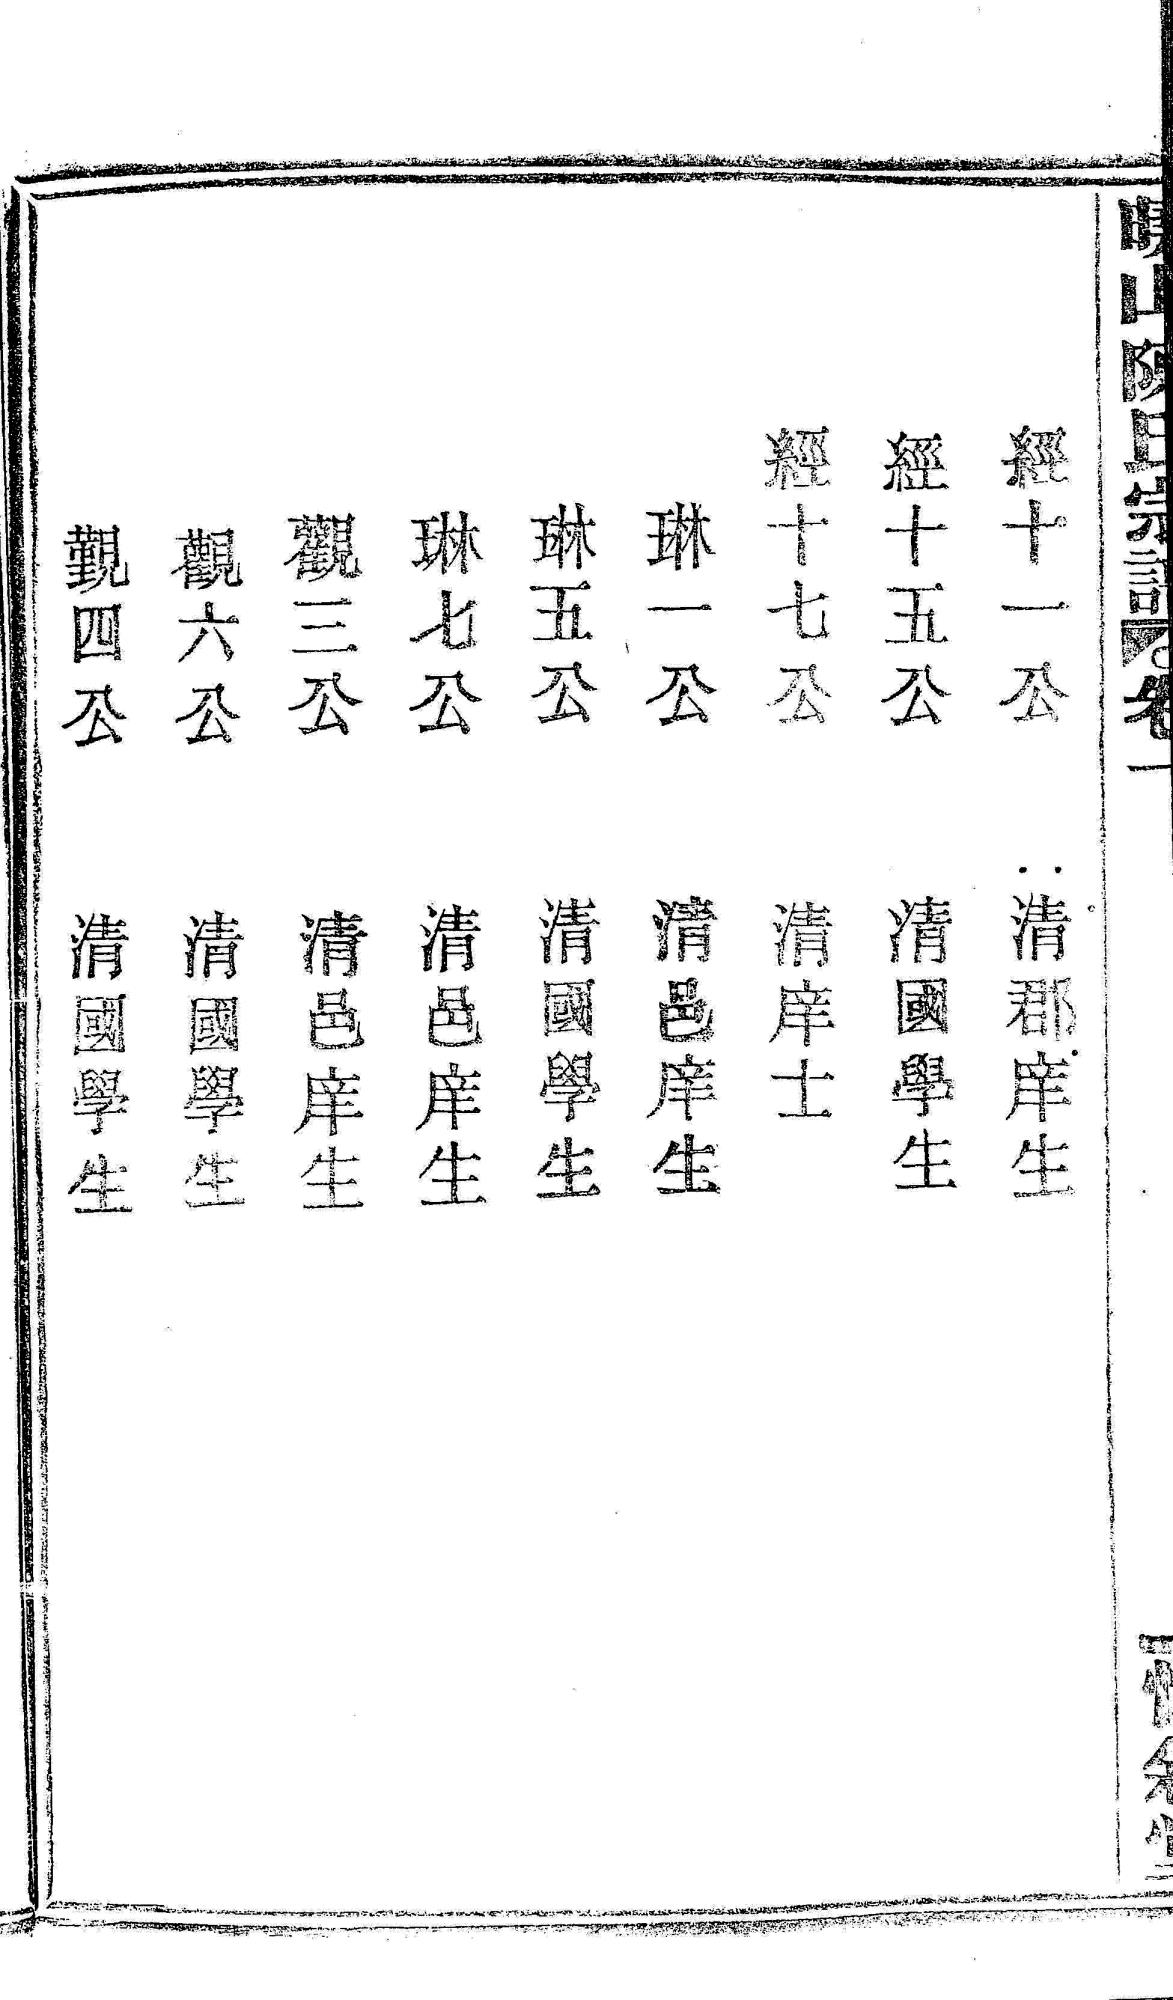 山陳氏宗譜 卷一
經十一公 清郡庠生
經十五公 清國學生
經十七公 清庠士
琳一公 清邑庠生
琳五公 清國學生
琳七公 清邑庠生
觀三公 清邑庠生
觀六公 清國學生
覲四公 清國學生